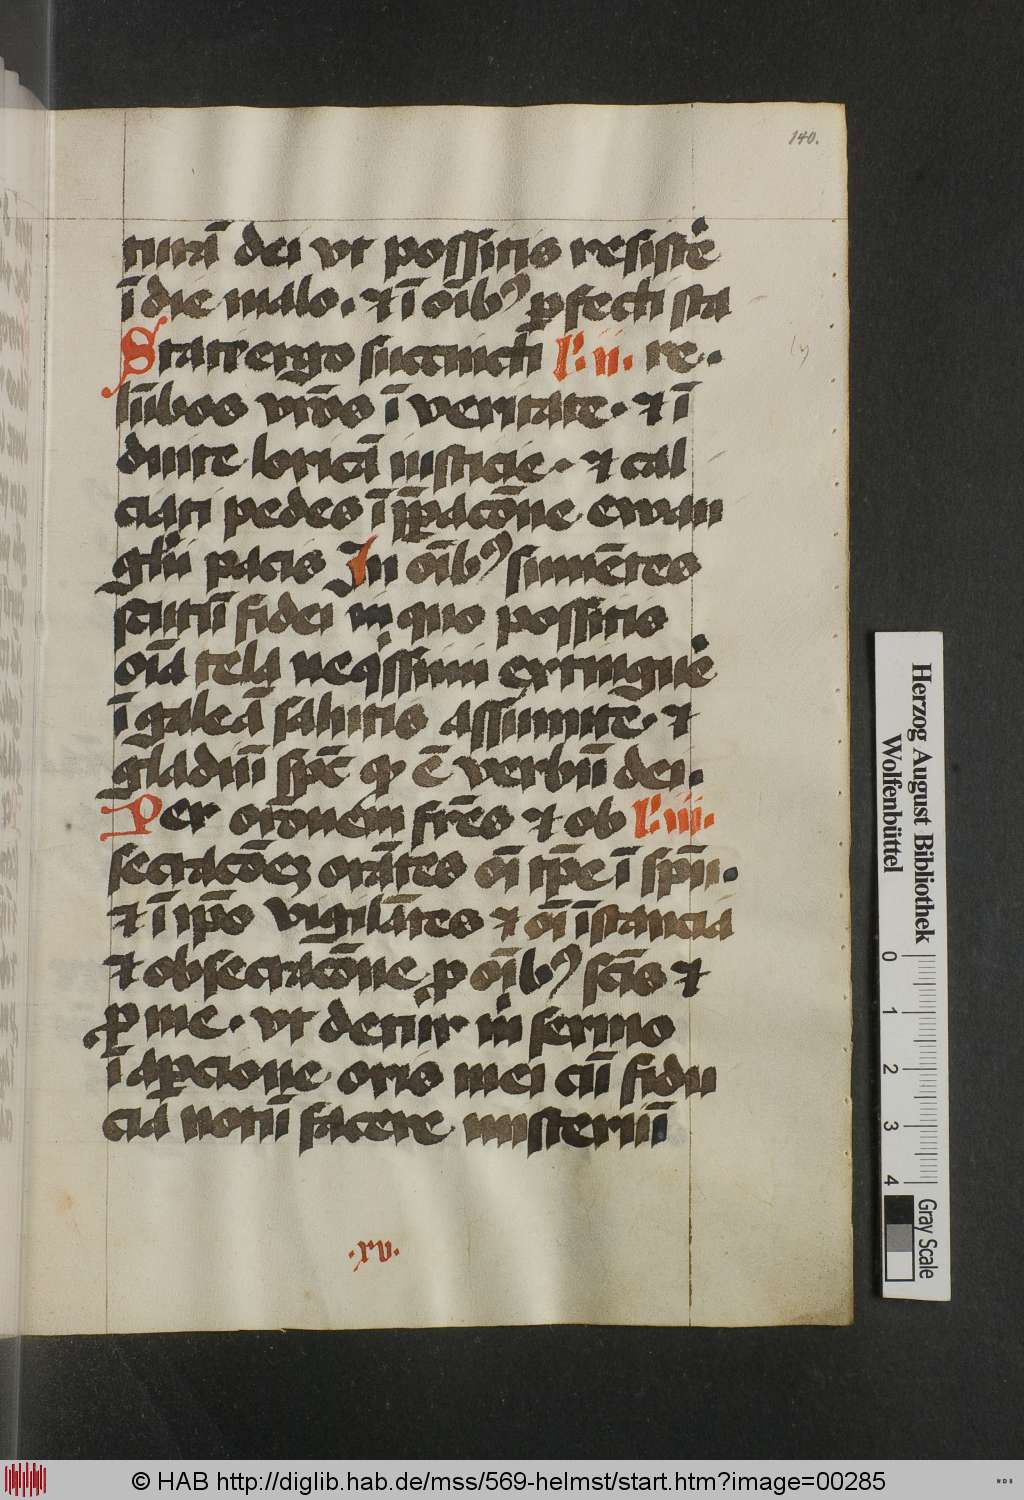 140.
turā dei vt possitis resistẽ
ī die malo · et ī oībꝰ ꝑfecti sta
State ergo succincti lc̄. ii. re·
lūbos vr̄os ī veritate · et ī
duite loricā iusticie · et cal
ciati pedes ī p̄ꝑacōne ewan
glii pacis In oībꝰ sumētes
scutū fidei in quo possitis
oīa tela neqͥssimi extinguẽ
ī galeā salutis assumite · et
gladiū sp̄c qͩ ē verbū dei ·
Per or̄onem fr̄es et ob lc̄. iii.
secracōeꝫ orātes oī tp̄e ī spū ·
et ī ip̄o vigilātes et oī īstancia
et obsecracōne ꝑ oībꝰ sc̄is et
ꝓ me · vt detur mͥ sermo
ī aꝑcione oris mei cū fidu
cia notū facere misteriū
·xv·
Herzog August Bibliothek
Wolfenbüttel
0 1 2 3 4
Gray Scale
© HAB http://diglib.hab.de/mss/569-helmst/start.htm?image=00285